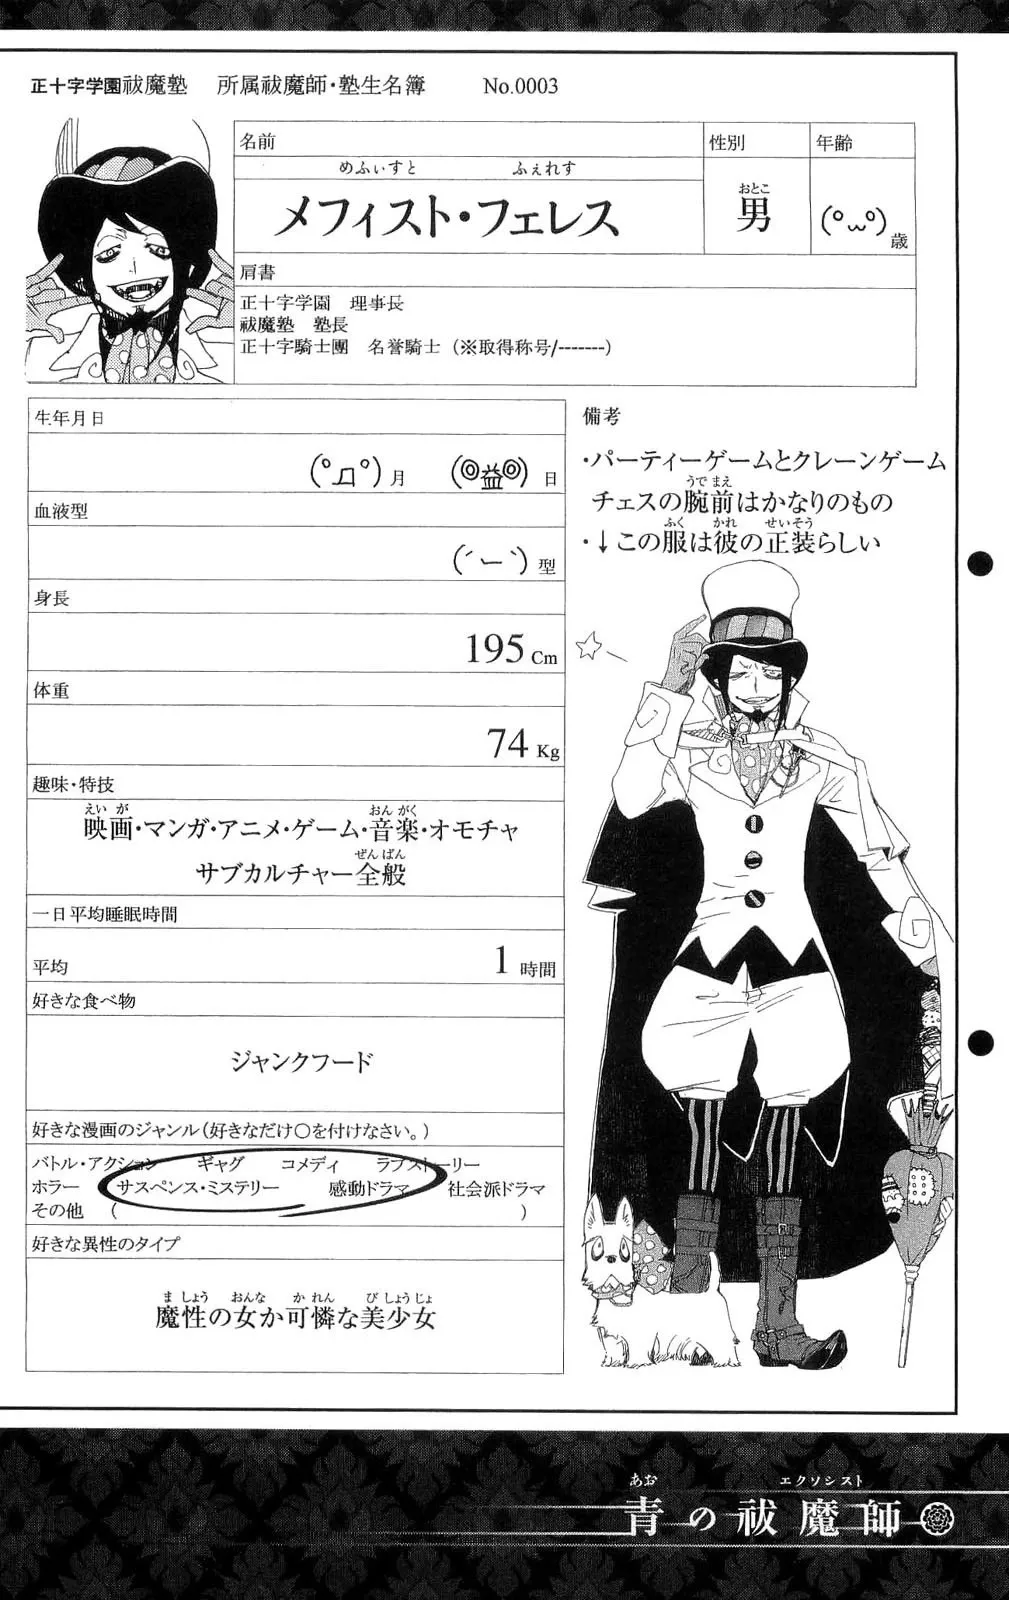 正十字学園祓魔塾 所属祓魔師・塾生名簿 No.0003
名前
めふぃすと ふぇれす
メフィスト・フェレス
性別
おとこ
男
年齢
(°ω°)歳
肩書
正十字学園 理事長
祓魔塾 塾長
正十字騎士團 名誉騎士(※取得称号/-------)
生年月日
(°д°)月 (◎益◎)日
血液型
(´ー`)型
身長
195 Cm
体重
74 Kg
趣味・特技
えいが おんがく
映画・マンガ・アニメ・ゲーム・音楽・オモチャ
ぜんぱん
サブカルチャー全般
一日平均睡眠時間
平均 1 時間
好きな食べ物
ジャンクフード
好きな漫画のジャンル(好きなだけ○を付けなさい。)
バトル・アクション ギャグ コメディ ラブストーリー
ホラー サスペンス・ミステリー 感動ドラマ 社会派ドラマ
その他 ( )
好きな異性のタイプ
ましょう おんな かれん びしょうじょ
魔性の女か可憐な美少女
備考
・パーティーゲームとクレーンゲーム
うでまえ
チェスの腕前はかなりのもの
ふく かれ せいそう
・↓この服は彼の正装らしい
あお エクソシスト
青の祓魔師